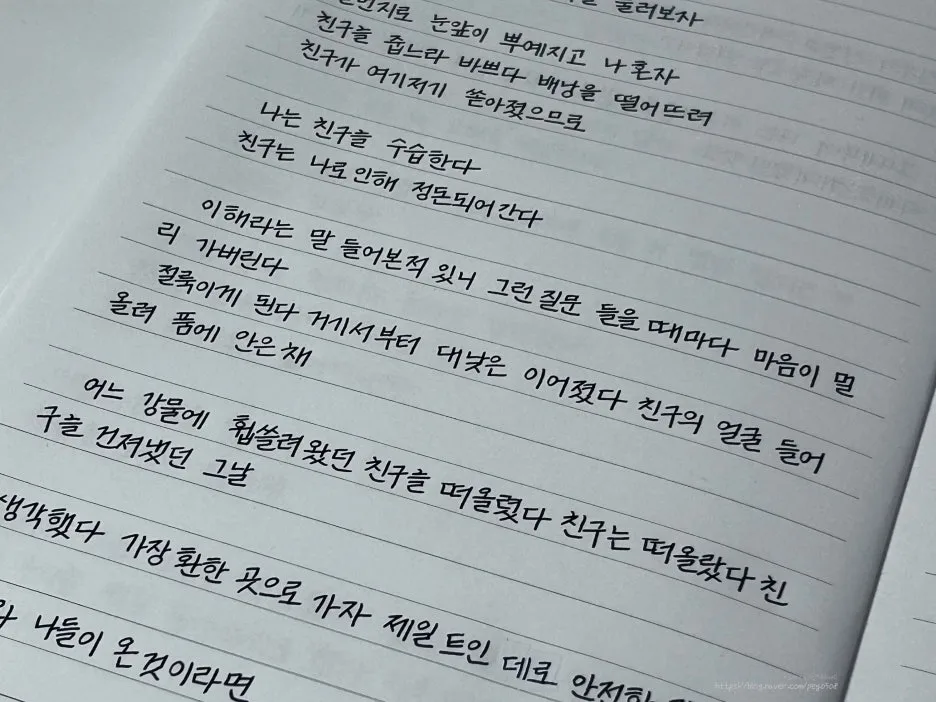 둘러보자
눈앞이 뿌예지고 나 혼자
친구를 줍느라 바쁘다 배낭을 떨어뜨려
친구가 여기저기 쏟아졌으므로
나는 친구를 수습한다
친구는 나로 인해 정돈되어간다
이해라는 말 들어본적 있니 그런 질문 들을 때마다 마음이 멀
리 가버린다
절룩이게 된다 거기서부터 대낮은 이어졌다 친구의 얼굴 들어
올려 품에 안은 채
어느 강물에 휩쓸려왔던 친구를 떠올렸다 친구는 떠올랐다 친
구를 건져냈던 그날
생각했다 가장 환한 곳으로 가자 제일 트인 데로 안전한
나들이 온 것이라면